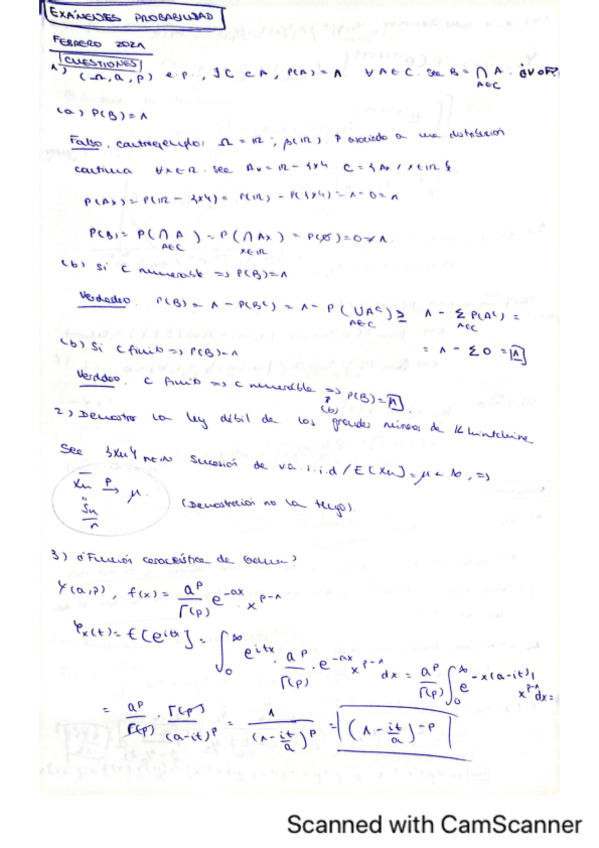 EXÁMENES PROBABILIDAD
FEBRERO 2021
CUESTIONES
1) (Ω, a, p) e.p., ∃C ⊂ A, P(A) = 1 ∀A∈C. Sea B = ⋂ A. ¿V o F?
A∈C
(a) P(B) = 1
Falso. contraejemplo: Ω = IR; β(IR) P asociado a una distribución
continua ∀x∈IR. sea Ax = IR - {x}. C = {Ax / x∈IR}
P(Ax) = P(IR - {x}) = P(IR) - P({x}) = 1 - 0 = 1
P(B) = P(⋂ A) = P(⋂ Ax) = P(∅) = 0 ≠ 1.
A∈C x∈IR
(b) Si C numerable => P(B) = 1
Verdadero. P(B) = 1 - P(Bᶜ) = 1 - P(⋃Aᶜ) ≥ 1 - Σ P(Aᶜ) =
A∈C A∈C
= 1 - Σ 0 = 1
(b) Si C finito => P(B) = 1
Verdadero. C finito => C numerable => P(B) = 1.
(b)
2) Demostrar la ley débil de los grandes números de Khintchine
Sea {Xn} n∈IN sucesión de v.a. i.i.d / E[Xn] = μ < ∞, =>
X̄n →ᴾ μ. (Demostración no la tengo)
"
Sn
n
3) ¿Función característica de Gamma?
γ(a,p), f(x) = aᵖ/Γ(p) e^(-ax) · x^(p-1)
φx(t) = E[e^(itx)] = ∫₀^∞ e^(itx) · aᵖ/Γ(p) · e^(-ax) x^(p-1) dx = aᵖ/Γ(p) ∫₀^∞ e^(-x(a-it)) x^(p-1) dx =
= aᵖ/Γ(p) · Γ(p)/(a-it)ᵖ = 1/(1 - it/a)ᵖ = (1 - it/a)^(-p)
Scanned with CamScanner